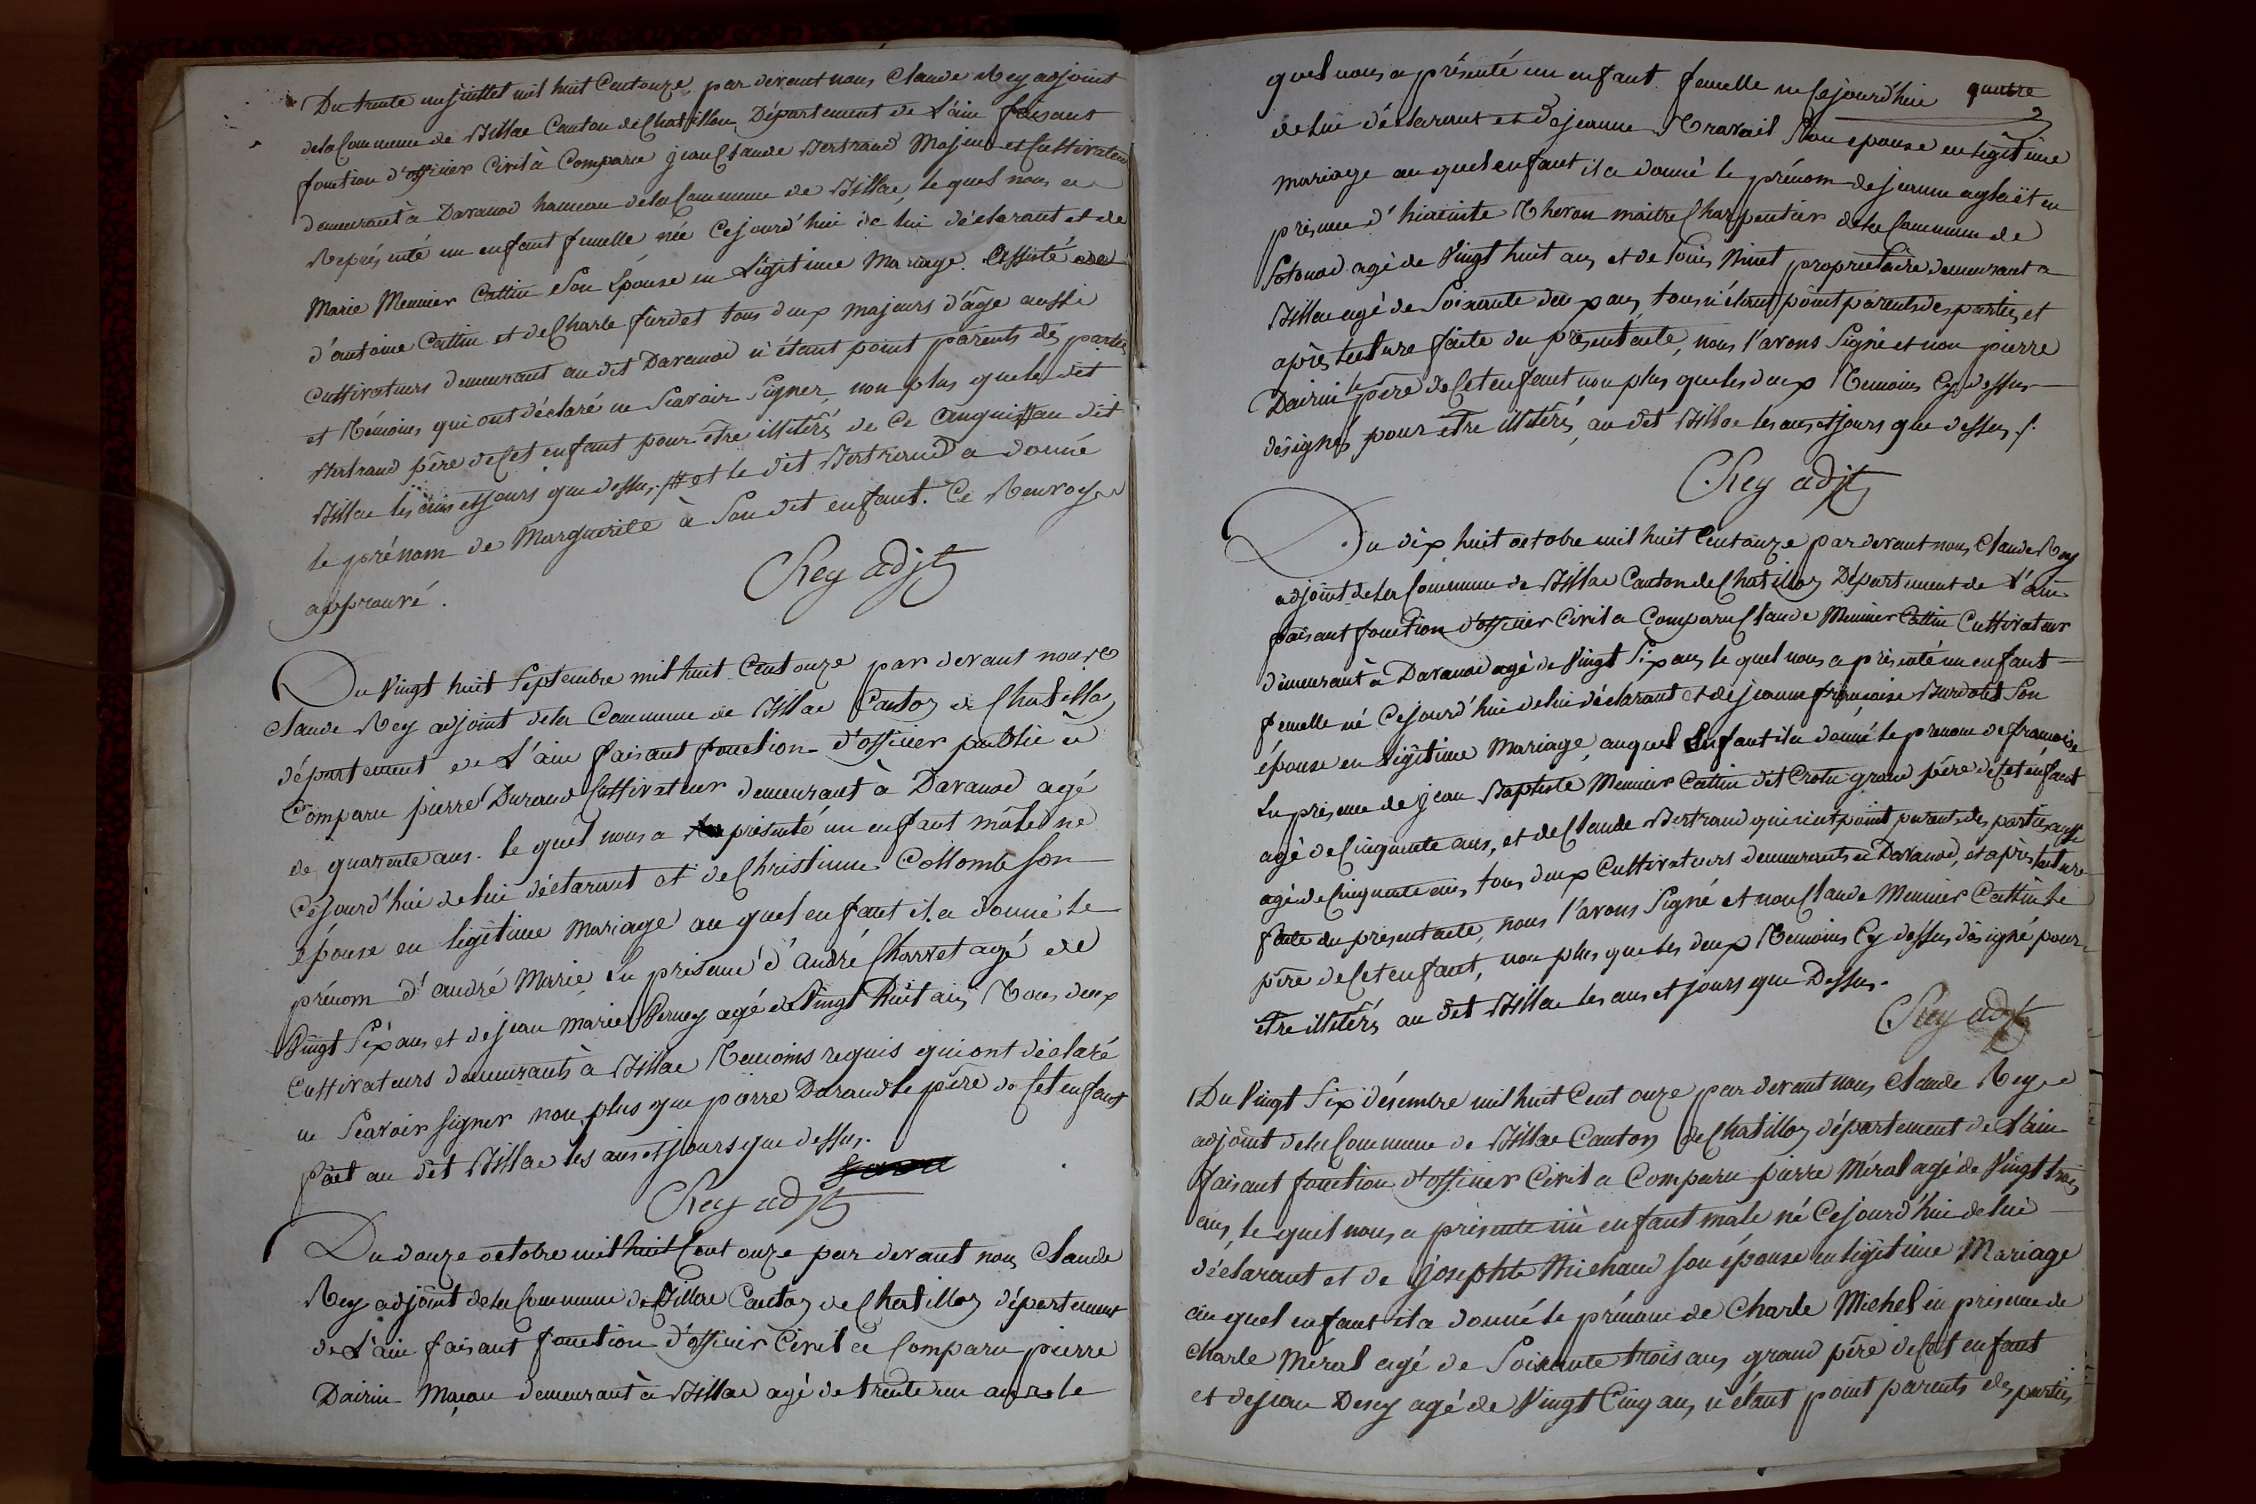 Du trente un juillet mil huit Cent onze par devant nous Claude Rey adjoint
de la Commune de Billac Canton de Chatillon Département de L'ain faisant
fonction d'officier Civil à Comparu jean Claude Bertrand Majeur et Cultivateur
demeurant à Davanod hameau de la Commune de Billac, le quel nous a
Représenté un enfant femelle née Cejourd'hui de lui déclarant et de
Marie Meunier Cattin Son Epouse en Légitime Mariage. Assisté de
d'antoine Cattin et de Charle furdet tous deux majeurs d'âge aussi
Cultivateurs demeurant au dit Davanod n'étant point parents des parties
et Témoins, qui ont déclaré ne Scavoir Signer, non plus que le dit
Bertrand père de Cet enfant pour être illitérés de Ce enquis # au dit
Billac les ans et jours que dessus. # et le dit Bertrand a donné
le prénom de Marguerite à Son dit enfant. Ce Renvoy
approuvé.
CRey adjt
Du Vingt huit Septembre mil huit Cent onze par devant nous
Claude Rey adjoint de la Commune de Billac Canton de Chatillon
département de L'ain faisant fonction d'officier public à
Comparu pierre Durand Cultivateur demeurant à Davanod agé
de quarente ans. le quel nous a présenté un enfant mâle né
Cejourd'hui de lui déclarant et de Christinne Collomb Son
épouse en légitime Mariage au quel enfant il a donné le
prénom d'andré Marie En présence d'andré Charvet agé de
Vingt Six ans et de jean marie Perney agé de Vingt huit ans, Tous deux
Cultivateurs demeurants à Billac Témoins requis qui ont déclaré
ne Scavoir Signer non plus que pierre Durand le père de Cet enfant
fait au dit Billac les ans et jours que dessus.
CRey adjt
Du douze octobre mil huit Cent onze par devant nous Claude
Rey adjoint de la Commune de Billac Canton de Chatillon département
de L'ain faisant fonction d'officier Civil a Comparu pierre
Dairin Maçon demeurant à Billac agé de trente un ans le
quatre
quel nous a présenté un enfant femelle né Cejourd'hui
de lui déclarant et de jeanne Travail Son epouse en légitime
mariage au quel enfant il a donné le prénom de jeanne aglaë et en
présence d'hiacinte Theron maitre Charpentier de la Commune de
Sotonod agé de Vingt huit ans, et de Louis Ninet propriétaire demeurant a
Billac agé de Soixante deux ans, tous n'étant point parents des parties, et
après lecture faite du présent acte, nous l'avons Signé et non pierre
Dairin le père de Cet enfant non plus que les deux Témoins Cy dessus
désignés pour etre illitérés, au dit Billac les ans et jours que dessus./.
CRey adjt
Du dix huit octobre mil huit Cent onze par devant nous Claude Rey
adjoint de la Commune de Billac Canton de Chatillon Département de L'ain
faisant fonction d'officier Civil a Comparu Claude Meunier Cattin Cultivateur
demeurant à Davanod agé de Vingt Six ans, le quel nous a présenté un enfant
femelle né Cejourd'hui de lui déclarant et de jeanne françoise Burdet Son
épouse en Légitime Mariage, auquel Enfant il a donné le prenom de françoise
En présence de jean Baptiste Meunier Cattin dit Crotu grand père de Cet enfant
agé de Cinquente ans, et de Claude Bertrand qui n'est point parents des parties aussi
agé de Cinquente ans, tous deux Cultivateurs demeurants à Davanod, et après lecture
faite du présent acte, nous l'avons Signé et non Claude Meunier Cattin le
père de Cet enfant, non plus que les deux Témoins Cy dessus désigné pour
etre illitérés au dit Billac les ans et jours que Dessus.
CRey adjt
Du Vingt Six désembre mil huit Cent onze par devant nous Claude Rey
adjoint de la Commune de Billac Canton de Chatillon département de L'ain
faisant fonction d'officier Civil a Comparu pierre Méral agé de Vingt trois
ans, le quel nous a présenté un enfant male né Cejourd'hui de lui
déclarant et de josephte Michaud Son épouse en légitime Mariage
au quel enfant il a donné le prénom de Charle Michel en présence de
Charle Méral agé de Soixante trois ans, grand père de Cet enfant
et de jean Dency agé de Vingt Cinq ans, n'étant point parents des parties